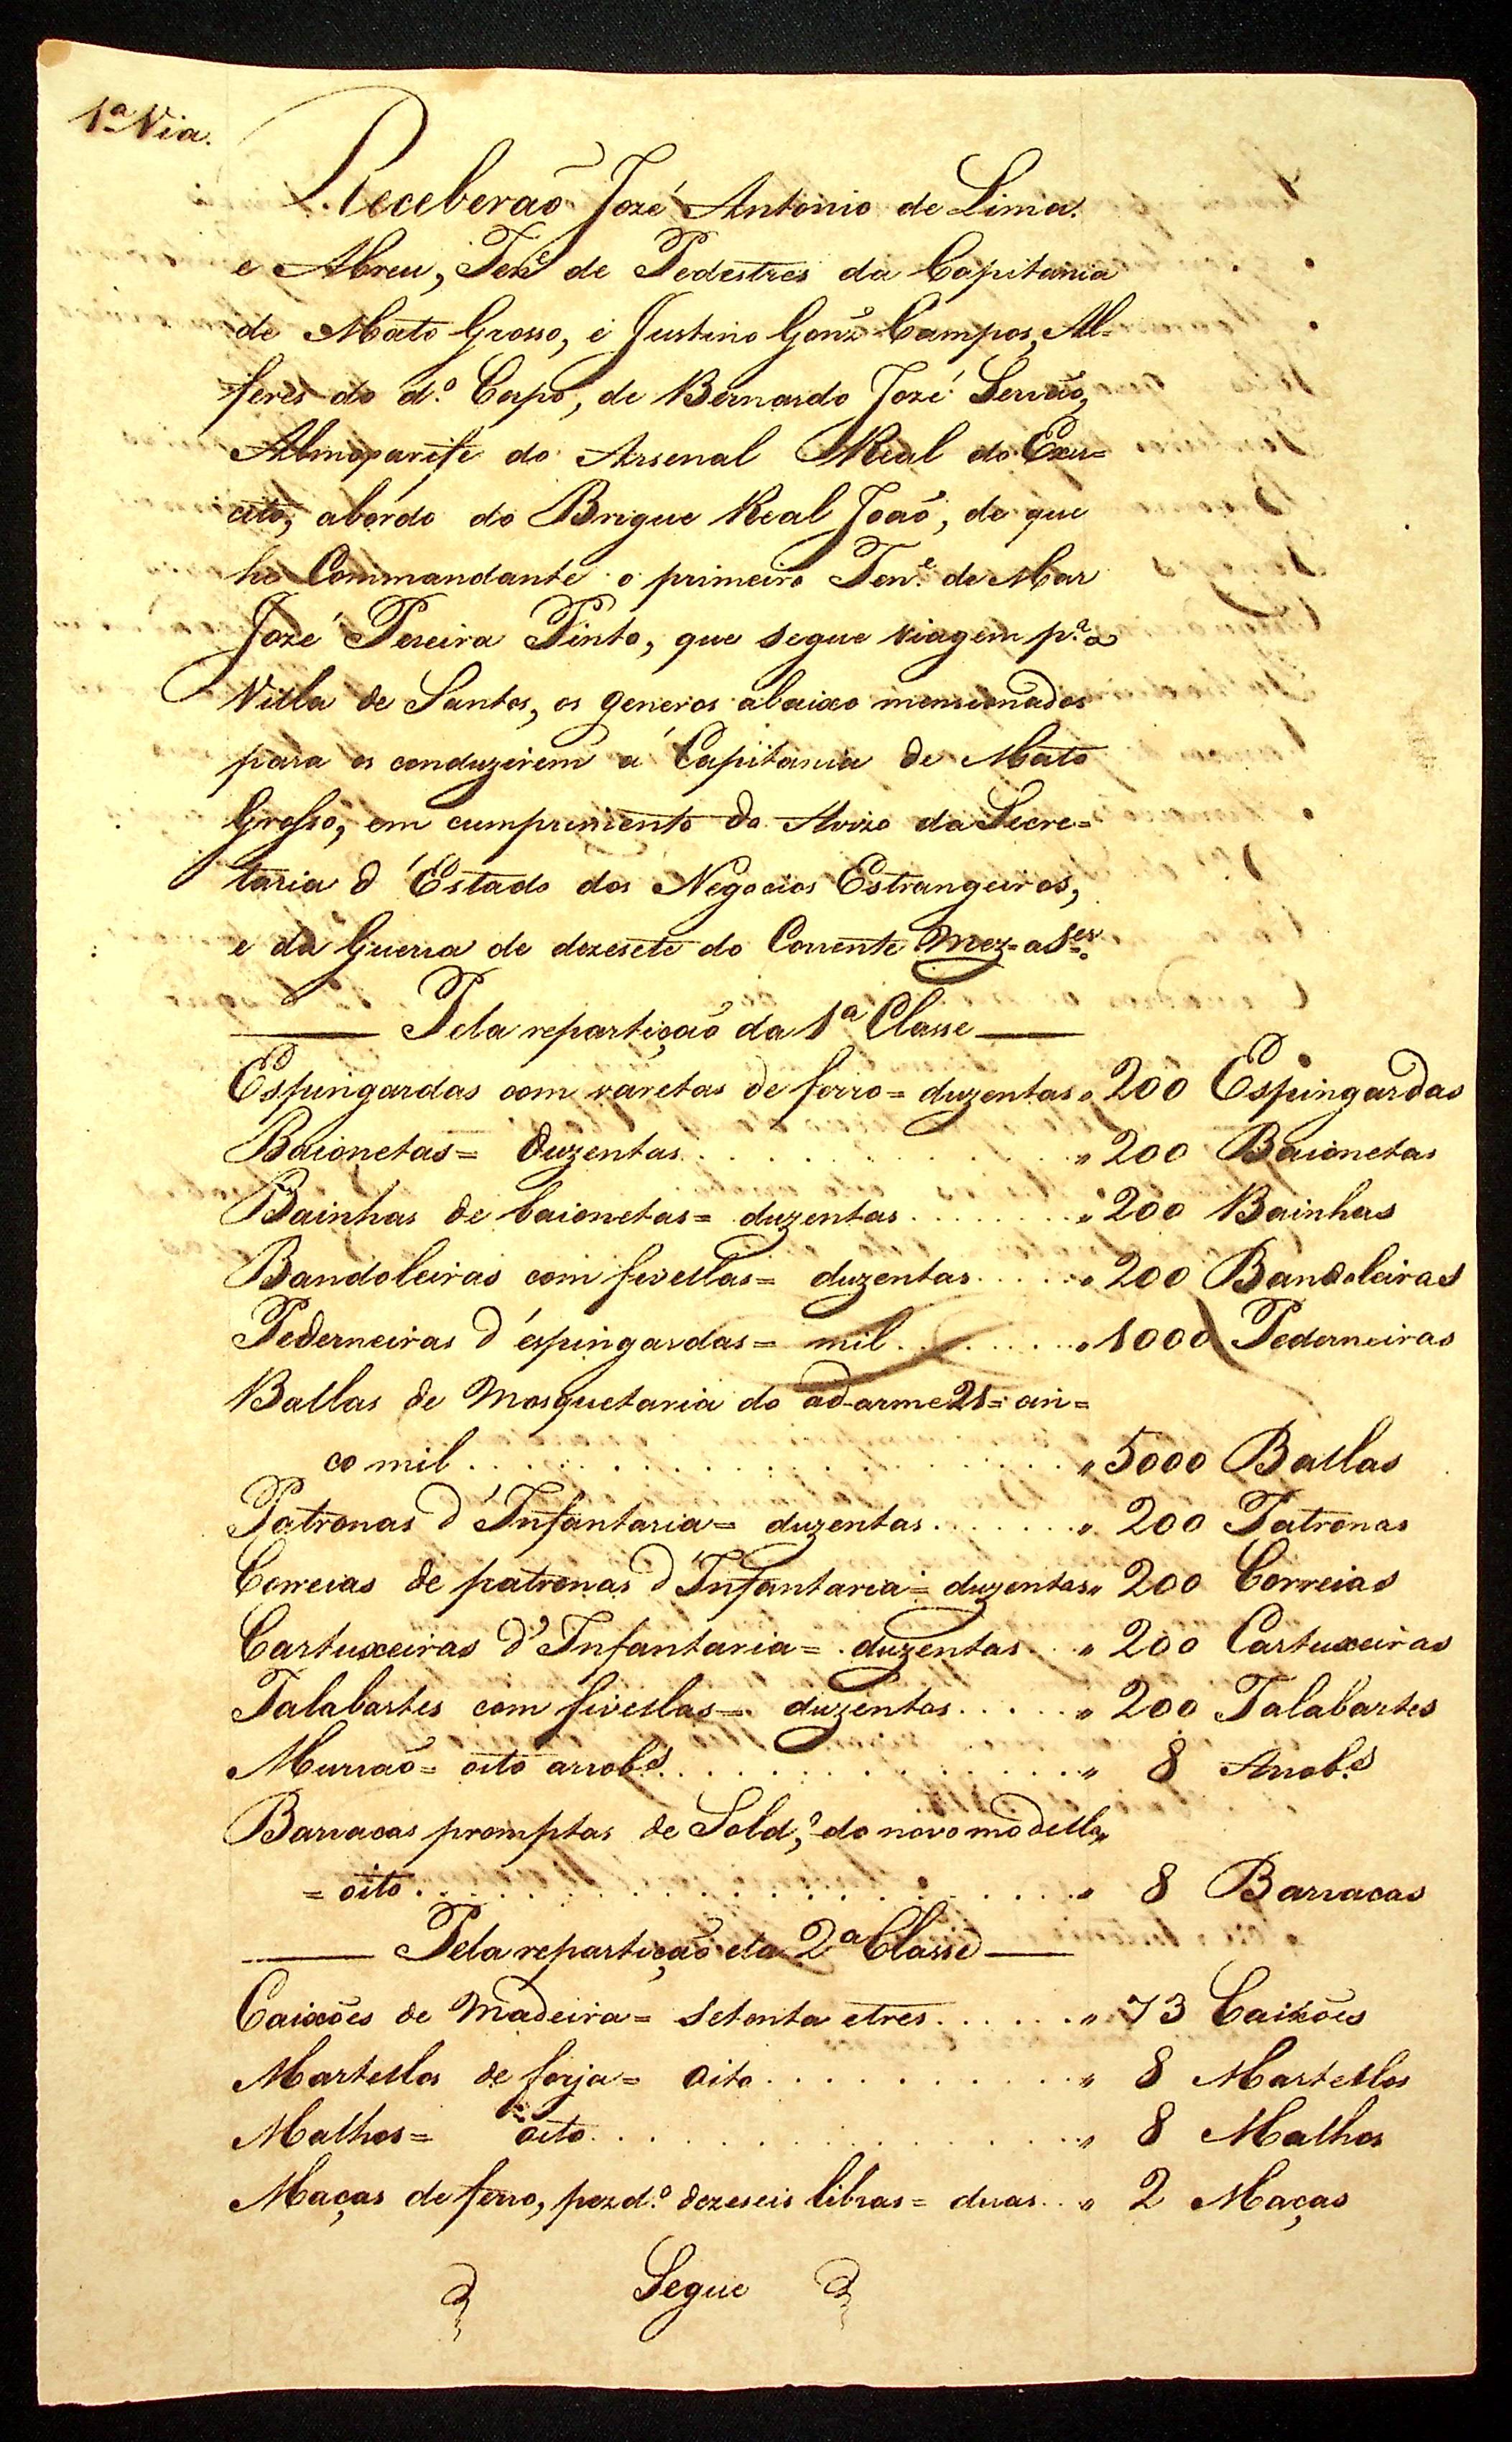 1ª Via.
Receberaõ Jozé Antonio de Lima
e Abreu, Ten.e de Pedestres da Capitania
de Mato Grosso, e Justino Gonz. Campos, Al=
feres do d.º Corpo, de Bernardo Jozé Serraõ,
Almoxarife do Arsenal Real do Exer=
cito, abordo do Brigue Real Joaõ, de que
he Commandante o primeiro Ten.e de Mar
Jozé Pereira Pinto, que segue viagem p.ª a
Villa de Santos, os generos abaixo mensionados
para os conduzirem á Capitania de Mato
Grosso, em cumprimento do Avizo da Secre=
taria d'Estado dos Negocios Estrangeiros,
e da Guerra de dezesete do Corrente Mez = a S.er
Pela repartiçaõ da 1ª Classe
Espingardas com varetas de ferro = duzentas „ 200 Espingardas
Baionetas = duzentas . . . . „ 200 Baionetas
Bainhas de baionetas = duzentas . . . . „ 200 Bainhas
Bandoleiras com fivellas = duzentas . . . . „ 200 Bandoleiras
Pederneiras d'espingardas = mil . . . . „ 1000 Pederneiras
Ballas de Mosquetaria do adarme 21 = cin=
co mil . . . . „ 5000 Ballas
Patronas d'Infantaria = duzentas . . . . „ 200 Patronas
Correias de patronas d'Infantaria = duzentas „ 200 Correias
Cartuxeiras d'Infantaria = duzentas . . „ 200 Cartuxeiras
Talabartes com fivellas = duzentos . . . . „ 200 Talabartes
Murraõ = oito arrob.s . . . . „ 8 Arrob.s
Barracas promptas de Sold.º do novo modello
= oito . . . . „ 8 Barracas
Pela repartiçaõ da 2ª Classe
Caixões de Madeira = Setenta e tres . . . . „ 73 Caixões
Martellos de forja = Oito . . . . „ 8 Martellos
Malhos = oito . . . . „ 8 Malhos
Maças de ferro, pezd.º dezeseis libras = duas . . „ 2 Maças
Segue